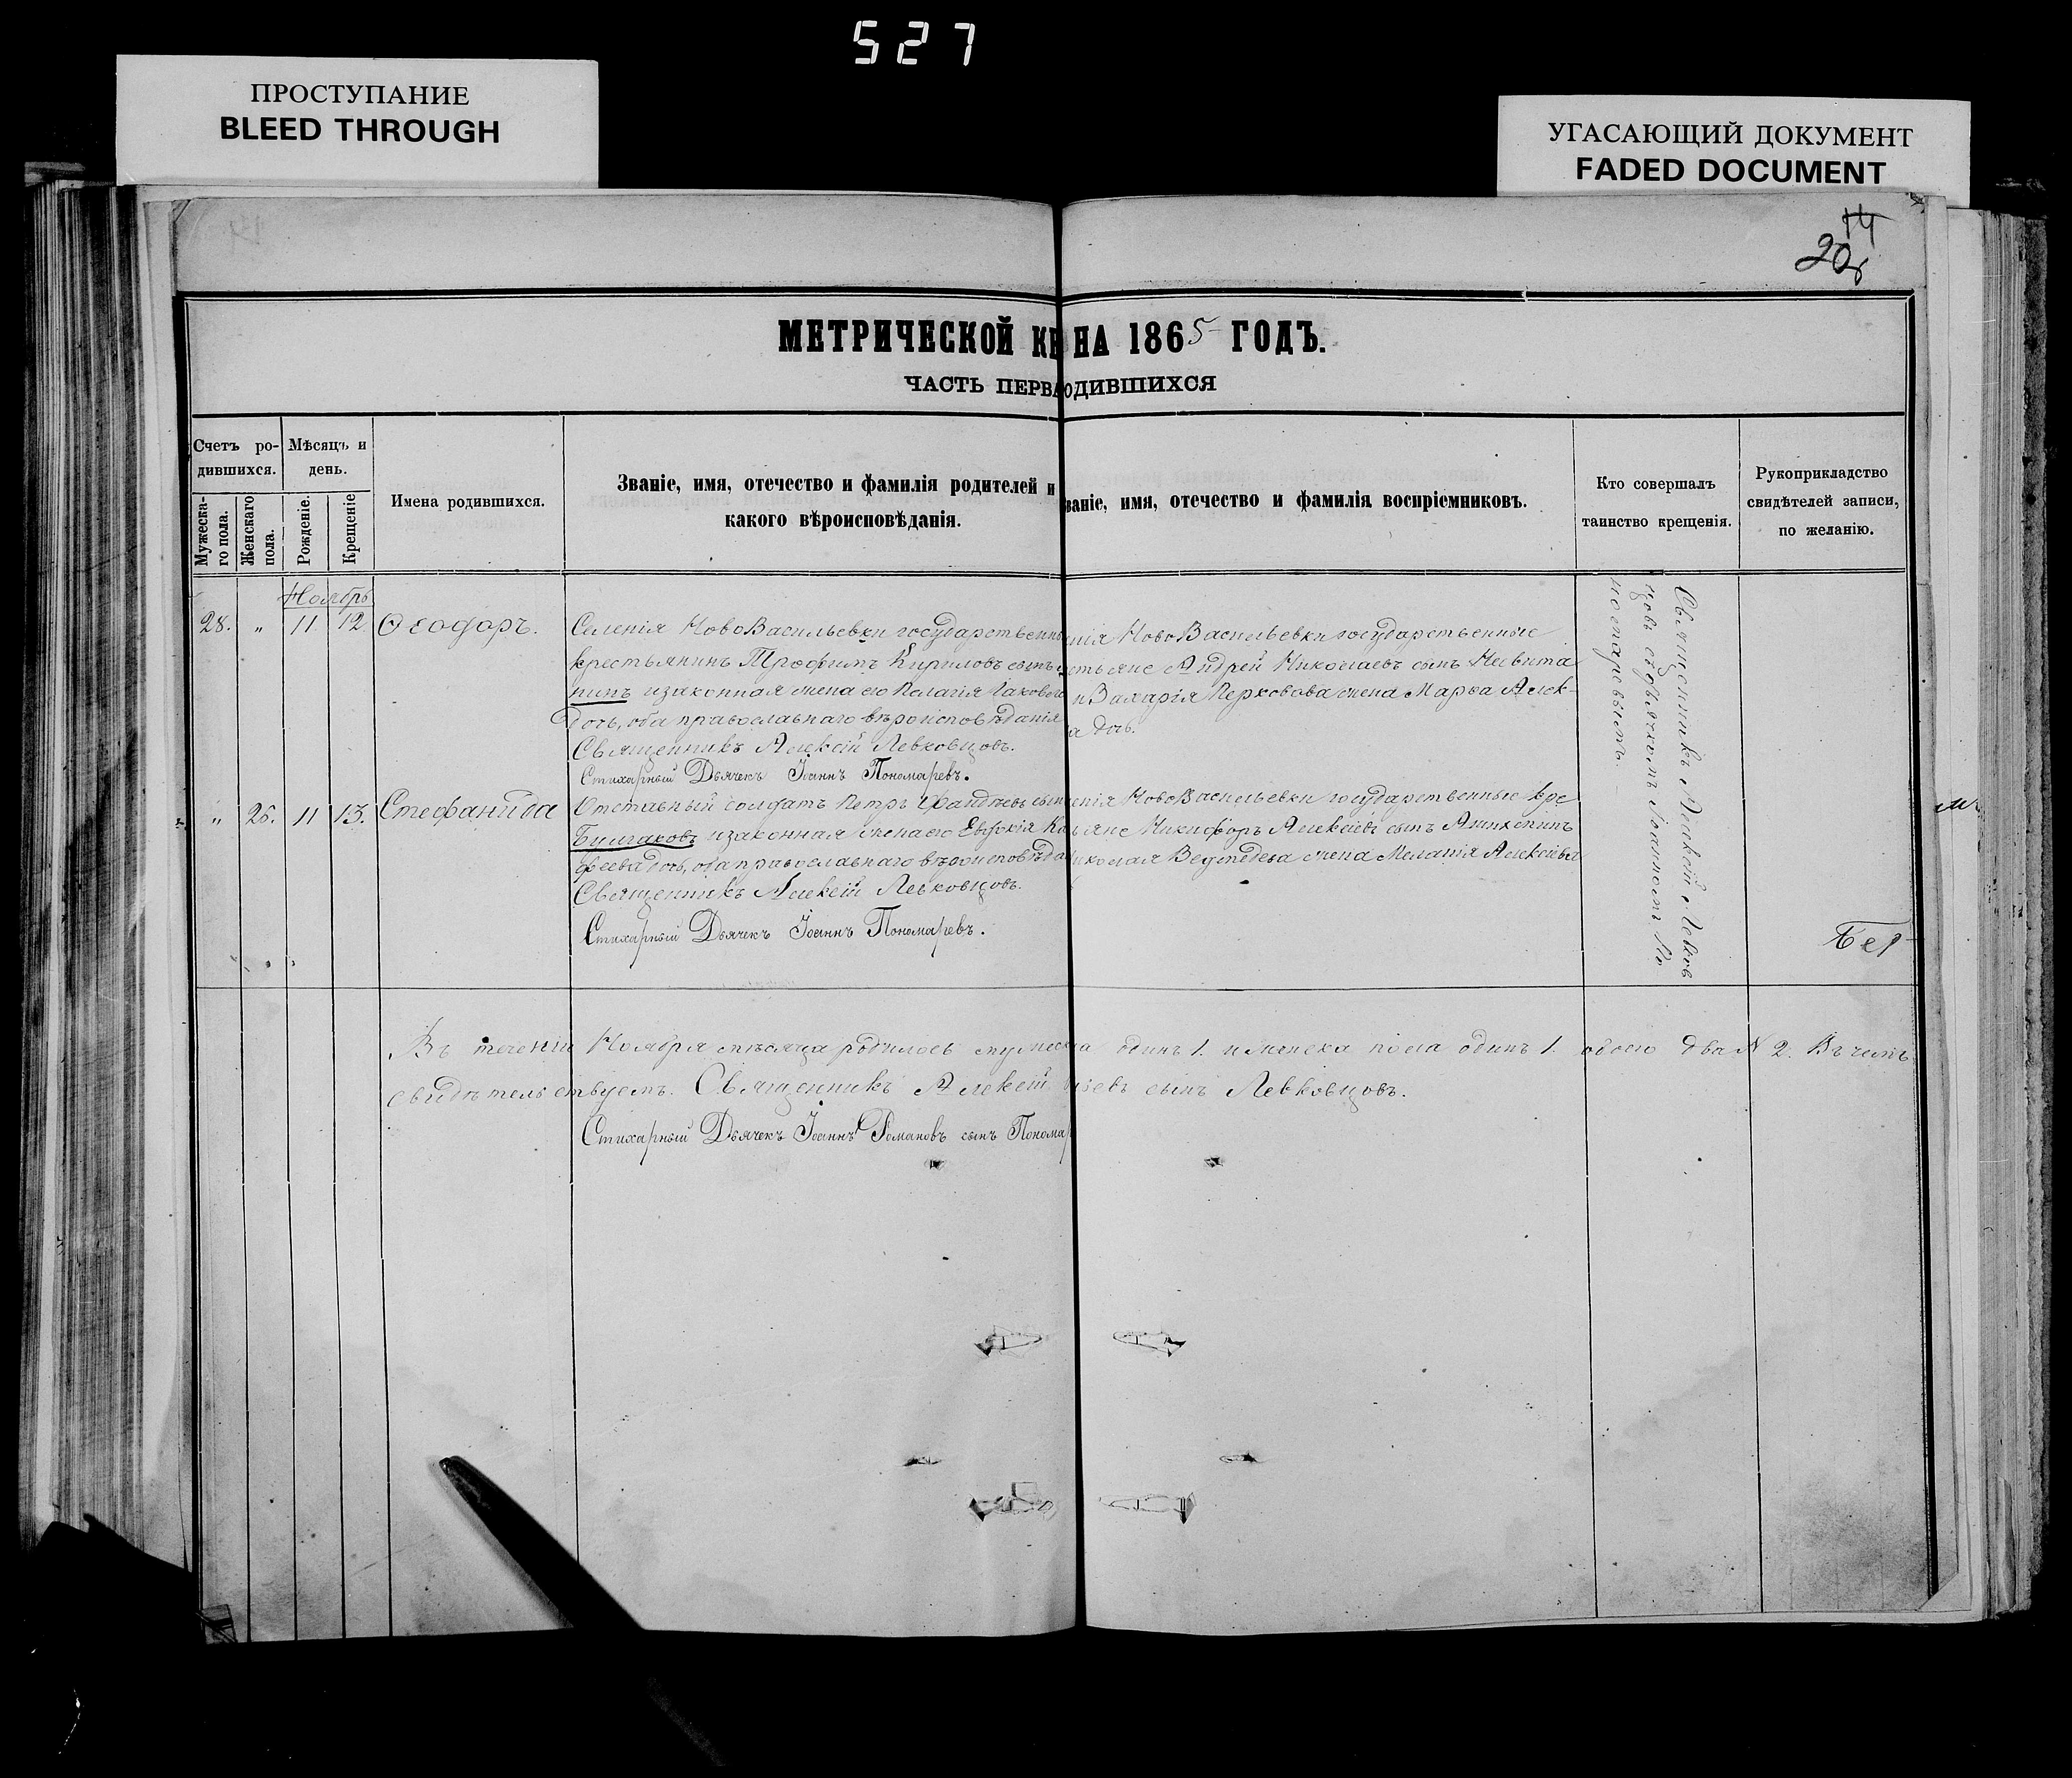 527
ПРОСТУПАНИЕ
BLEED THROUGH
УГАСАЮЩИЙ ДОКУМЕНТ
FADED DOCUMENT
14
МЕТРИЧЕСКОЙ КН НА 1865 ГОДЪ.
ЧАСТЬ ПЕРВА ОДИВШИХСЯ
Счетъ ро-
дившихся.
Мужеска-
го пола.
Женскаго
пола.
Мѣсяцъ и
день.
Рожденіе.
Крещеніе
Имена родившихся.
Званіе, имя, отечество и фамилія родителей и
какого вѣроисповѣданія.
ваніе, имя, отечество и фамилія воспріемниковъ.
Кто совершалъ
таинство крещенія.
Рукоприкладство
свидѣтелей записи,
по желанію.
Ноябрь
28. „ 11 12 Ѳеодоръ.
Селенія НовоВасильевки государственны
крестьянинъ Трофимъ Кириловъ сынъ
нинъ изаконная жена его Пелагія Іаковова
дочь, оба православнаго вѣроисповѣданія
Священникъ Алексій Левковцовъ.
Стихарный Дьячекъ Іоаннъ Пономаревъ.
енія НовоВасильевки государственные
стьяне Андрей Николаевъ сынъ
и Захарія жена Марѳа Алек-
а дочь.
„ 26. 11 13. Стефанида
Отставный солдатъ Петръ сын
Булгаковъ изаконная жена его Евдокія
феева дочь, оба православнаго вѣроисповѣда
Священникъ Алексій Левковцовъ.
Стихарный Дьячекъ Іоаннъ Пономаревъ.
енія НовоВасильевки государственные кре
ьяне Никифоръ Алексіевъ сынъ
иколая Ведмедева жена Меланія Алексіева
Священникъ Алексій Левков
цовъ съ дьячкомъ Іоанномъ По
номаревымъ.
Въ теченіи Ноября мѣсяца родилось мужеска одинъ 1. и женска пола одинъ 1. обоего два 2. Въ чемъ
свидѣтельствуемъ. Священникъ Алексій сынъ Левковцовъ.
Стихарный Дьячекъ Іоаннъ Романовъ сынъ Понома